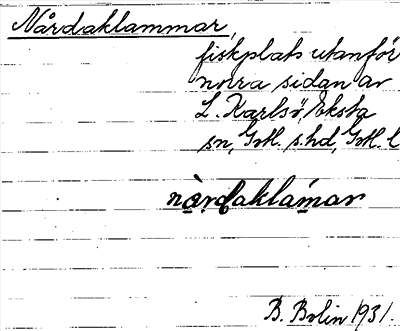 Nårdaklammar,
fiskplats utanför
norra sidan av
L. Karlsö, Eksta
sn, Gotl. s. hd, Gotl. l
B. Bolin 1931.